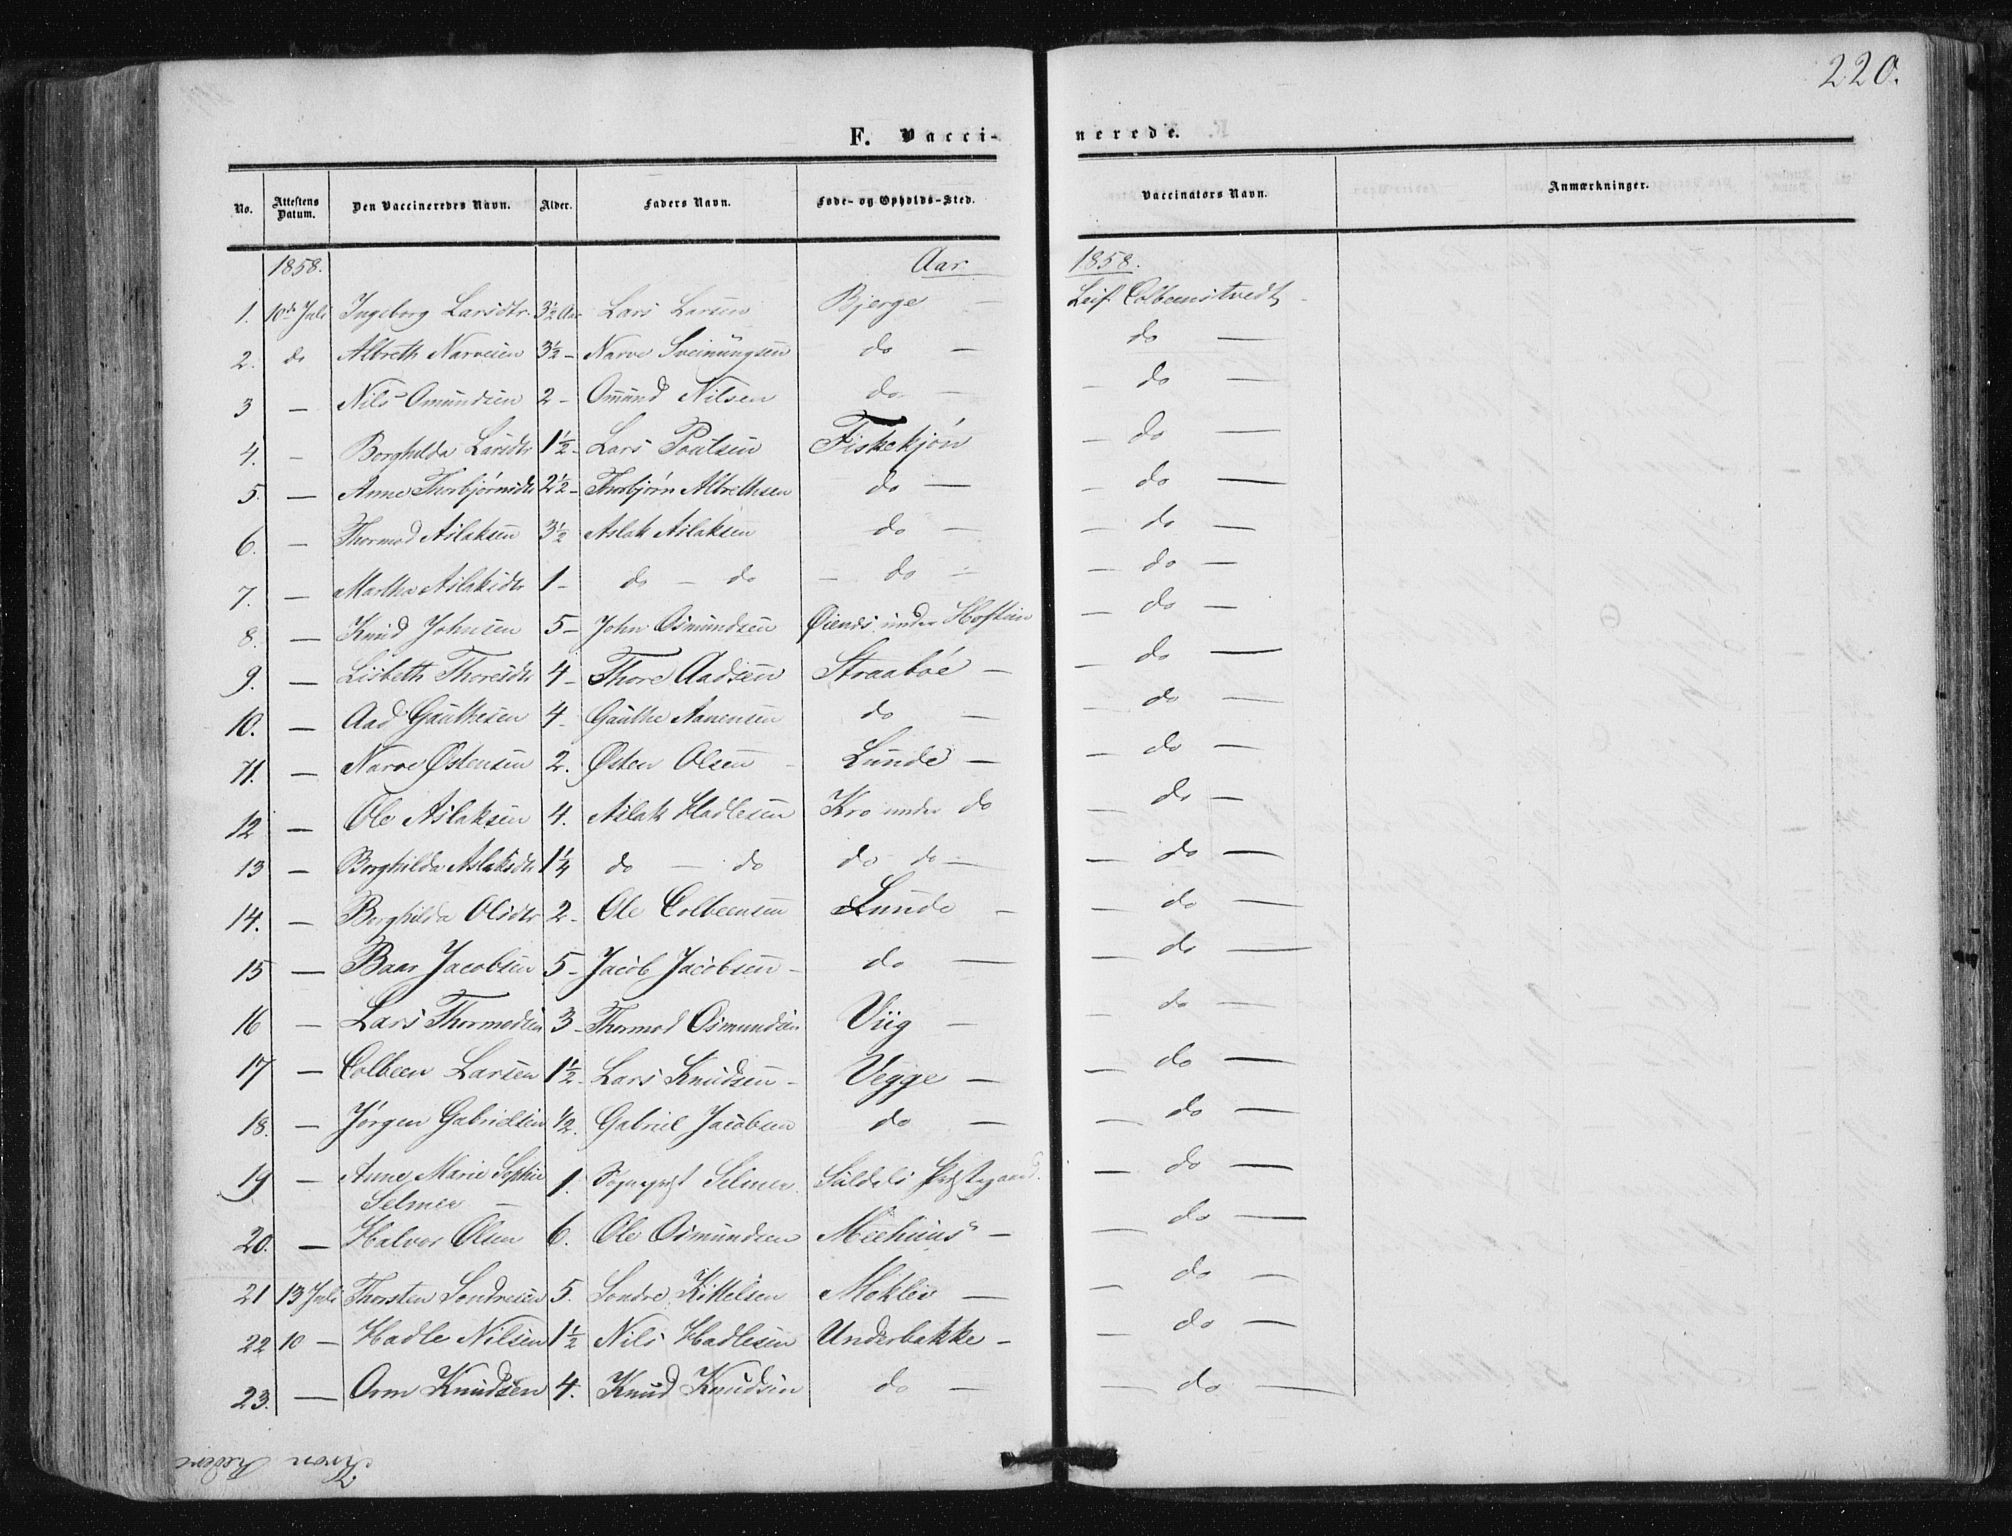 220.
F. Vaccinerede.
No. Attestens Datum. Den Vaccineredes Navn. Alder. Faders Navn. Føde- og Opholds-Sted. Vaccinators Navn. Anmærkninger.
1858. Aar 1858.
1. 10de Juli Ingeborg Larsdtr. 3½ Aar Lars Larsen Bjerge — Leif Colbeenstvedt
2. do Albreth Narvesen 3½ - Narve Sveinungsen do — do —
3 — Nils Omundsen 2 - Omund Nilsen do — — do —
4. — Borghilda Larsdtr 1½ - Lars Poulsen Fiskekjøn — do —
5. — Anne Thorbjørnsdtr 2½ - Thorbjørn Albrethsen do — — do —
6. — Thormod Aslaksen 3½ Aslak Aslaksen do — — do —
7. — Martha Aslaksdtr 1 - do — do — do — — do —
8. — Knud Johnsen 5 - John Osmundsen Øiends under Hoftun — do —
9. — Lisbeth Thoresdtr 4 - Thore Aadsen Straabøe — — do —
10. — Aad Gauthesen 4 - Gauthe Aanensen do — — do —
11. — Narve Østensen 2. Østen Olsen Lunde — — do —
12 — Ole Aslaksen 4. Aslak Hadlesen Kro under do — do —
13 — Borghilda Aslaksdtr 1¼ do — do do do — — do —
14. — Borghilda Olsdtr 2 - Ole Colbeensen Lunde — — do —
15 — Baar Jacobsen 5 - Jacob Jacobsen - do — — do —
16 — Lars Thormodsen 3 - Thormod Osmundsen Viig — — do —
17 — Colbeen Larsen 1½ - Lars Knudsen - Vegge — — do —
18. — Jørgen Gabrielsen ½. Gabriel Jacobsen do — — do —
19 — Anne Marie Sophie 1. Sogneprst Selmer. Suldals Præstegaard. — do —
Selmer —
20. — Halvor Olsen 6. Ole Osmundsen Meehuus — — do —
21 13 Juli Thorsten Sondresen 5. Sondre Kittelsen Moklev — — do —
22 10 — Hadle Nilsen 1½ Nils Hadlesen Underbakke — — do —
23. — Orm Knudsen 4. Knud Knudsen do — — do —